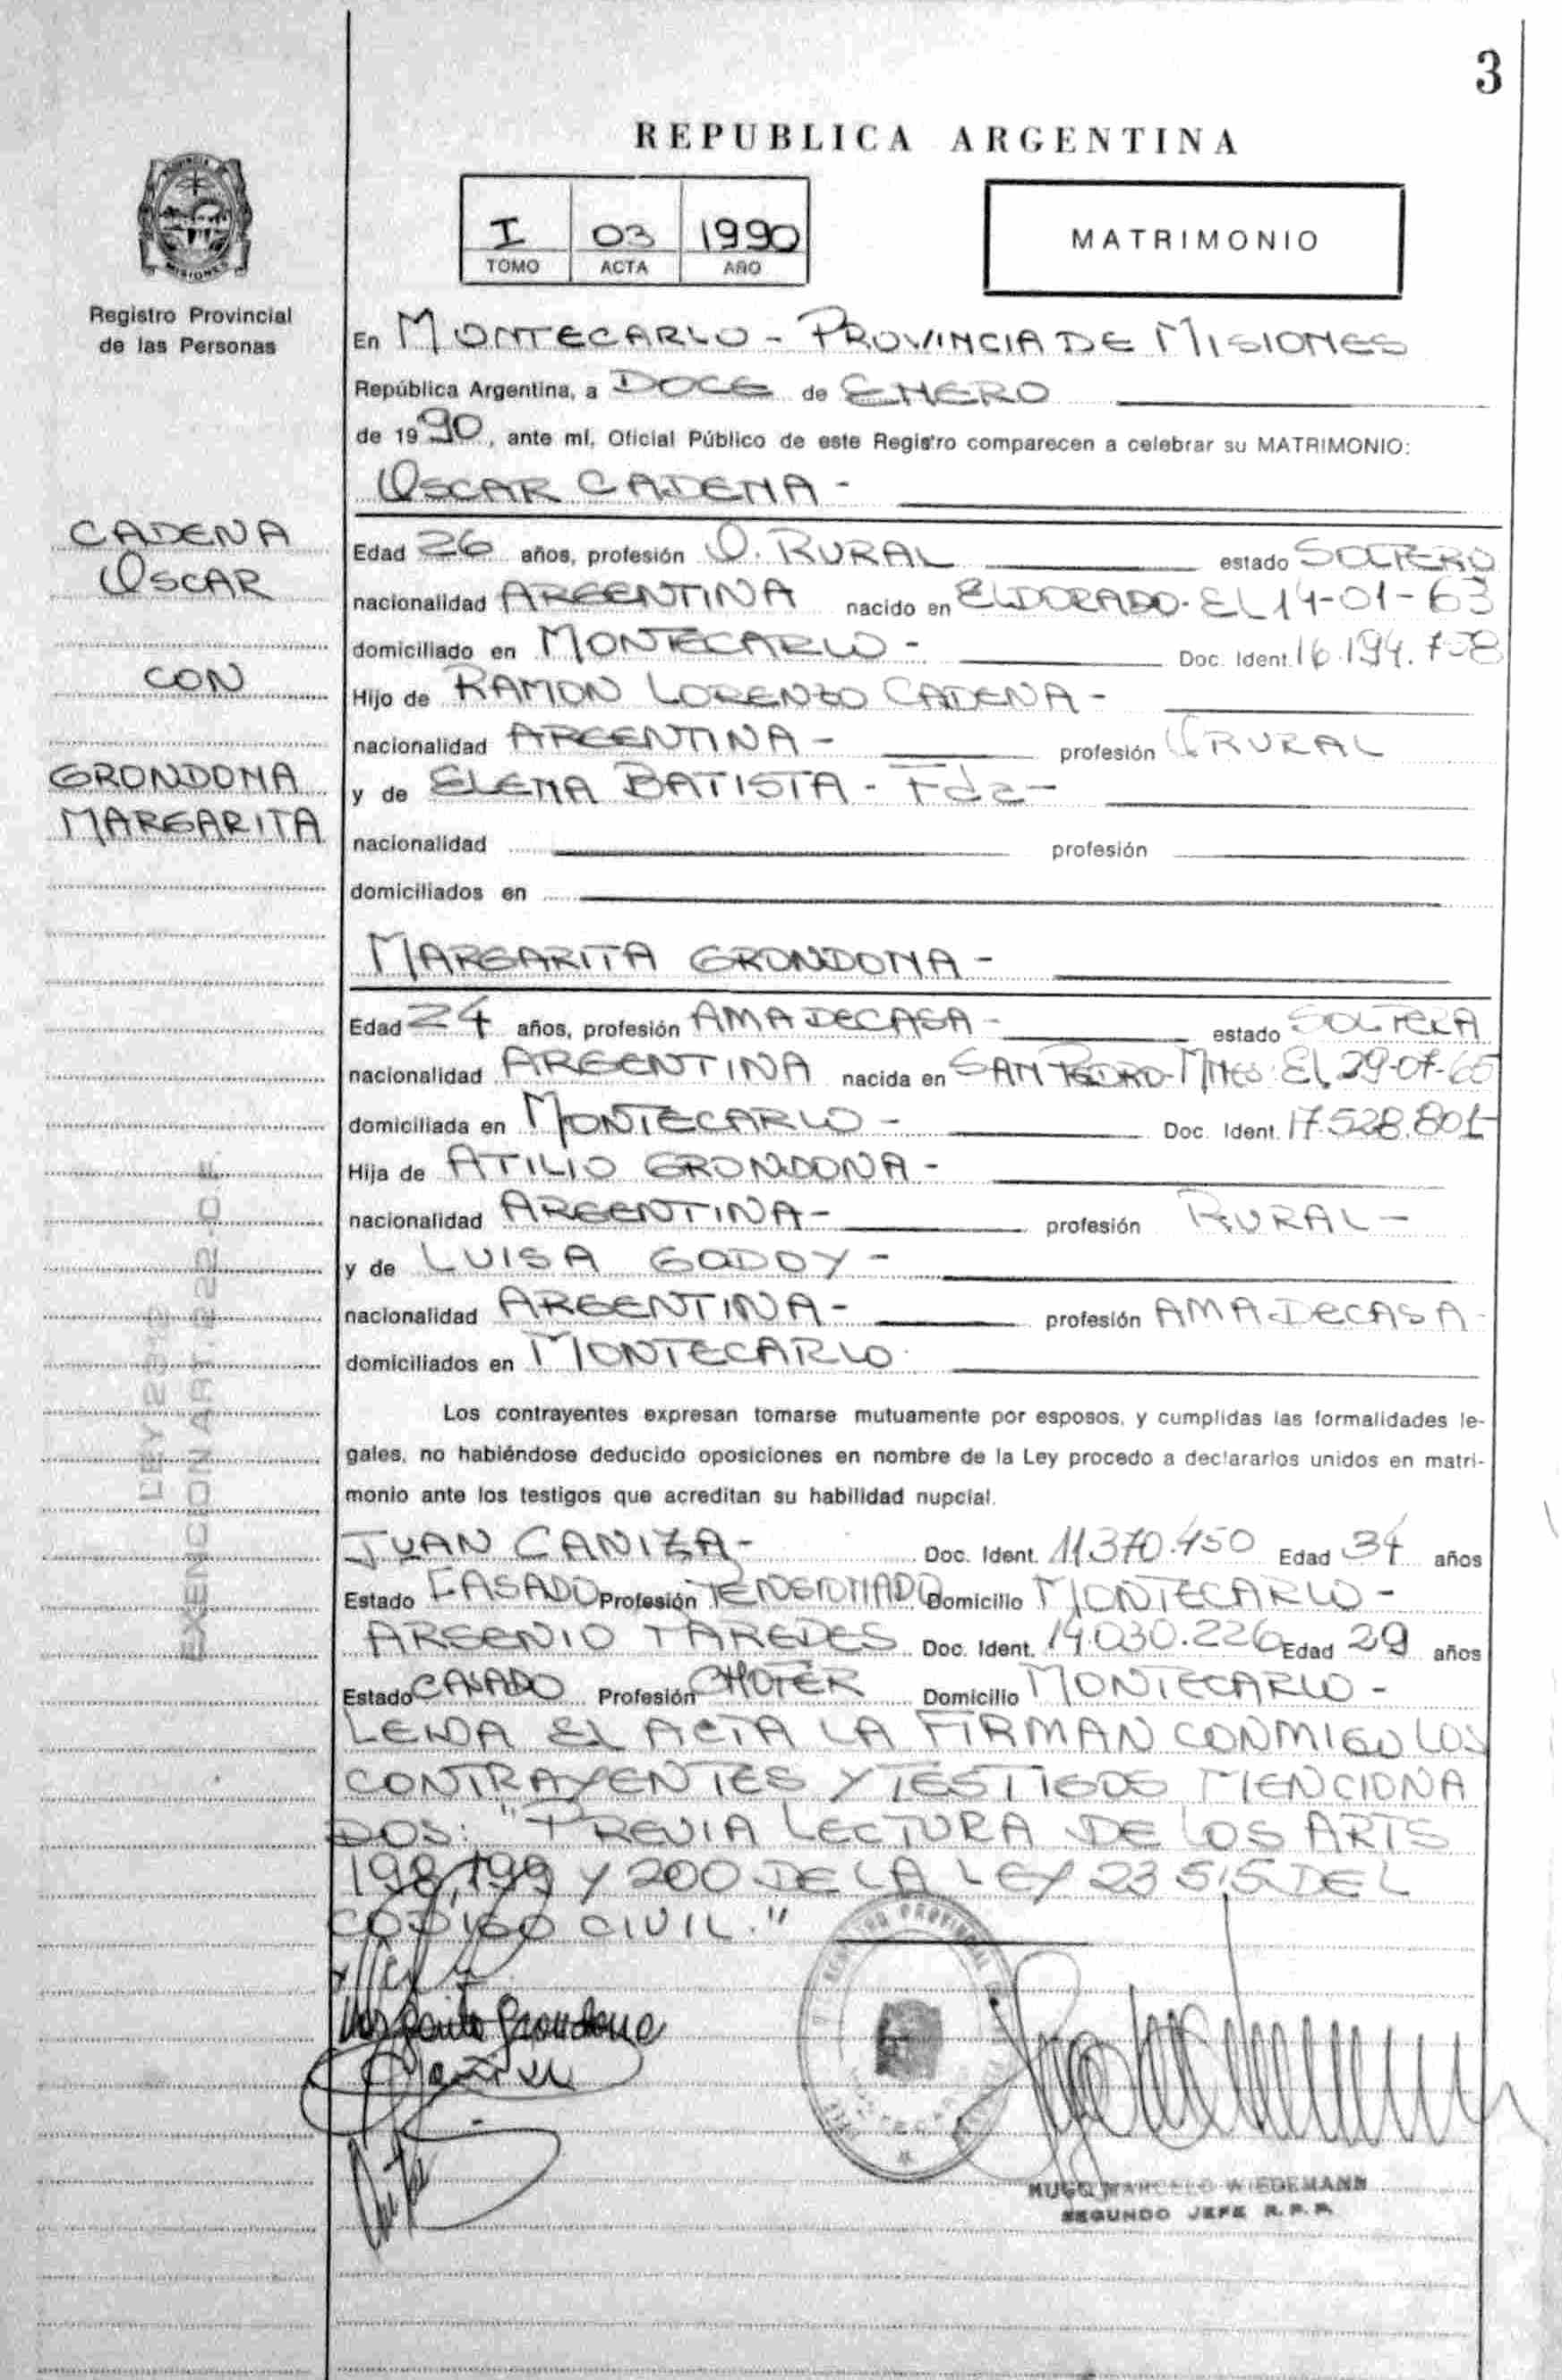 3
REPUBLICA ARGENTINA
PROVINCIA
MISIONES
Registro Provincial
de las Personas
I 03 1990
TOMO ACTA AÑO
MATRIMONIO
En MONTECARLO - PROVINCIA DE MISIONES
República Argentina, a DOCE de ENERO
de 1990, ante mí, Oficial Público de este Registro comparecen a celebrar su MATRIMONIO:
OSCAR CADENA -
CADENA
OSCAR
CON
GRONDONA
MARGARITA
Edad 26 años, profesión O. RURAL estado SOLTERO
nacionalidad ARGENTINA nacido en ELDORADO - EL 14-01-63
domiciliado en MONTECARLO - Doc. Ident. 16.194.
Hijo de RAMON LORENZO CADENA -
nacionalidad ARGENTINA - profesión RURAL
y de ELENA BATISTA - Fda -
nacionalidad profesión
domiciliados en
MARGARITA GRONDONA -
Edad 24 años, profesión AMA DE CASA - estado SOLTERA
nacionalidad ARGENTINA nacida en SAN PEDRO - Mnes El 29-07-65
domiciliada en MONTECARLO - Doc. Ident. 17.528.801
Hija de ATILIO GRONDONA -
nacionalidad ARGENTINA - profesión RURAL -
y de LUISA GODOY -
nacionalidad ARGENTINA - profesión AMA DE CASA -
domiciliados en MONTECARLO
Los contrayentes expresan tomarse mutuamente por esposos, y cumplidas las formalidades le-
gales, no habiéndose deducido oposiciones en nombre de la Ley procedo a declararlos unidos en matri-
monio ante los testigos que acreditan su habilidad nupcial.
JUAN CANIZA - Doc. Ident. 11.370.450 Edad 34 años
Estado CASADO Profesión PENSIONADO Domicilio MONTECARLO -
ARSENIO PAREDES Doc. Ident. 14.030.226 Edad 29 años
Estado CASADO Profesión CHOFER Domicilio MONTECARLO -
LEIDA EL ACTA LA FIRMAN CONMIGO LOS
CONTRAYENTES Y TESTIGOS MENCIONA
DOS: "PREVIA LECTURA DE LOS ARTS
198, 199 Y 200 DE LA LEY 23515 DEL
CODIGO CIVIL."
Margarita Grondona
HUGO MARCELO WIEDEMANN
SEGUNDO JEFE R.P.P.
EXENCION ART.